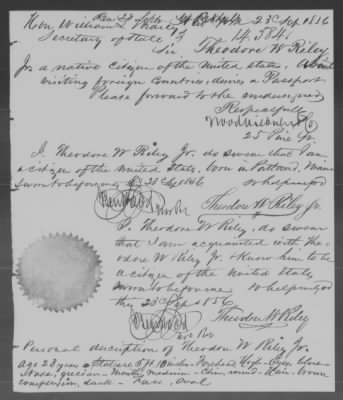 Hon William L Marcy
23d Sep 1856
Secretary of State
14.584.
Sir
Theodore W Riley
Jr a native Citizen of the United States. About
visiting foreign Countries, desires a Passport
Please forward to the undersigned
Respectfully
25 Pine St
I, Theodore W Riley Jr. do swear that I am
a citizen of the United States, born in Portland, Maine
Sworn to before me 23 Sep 1856. So help me God
Theodore W Riley Jr.
I. Theodore W Riley, do swear
that I am acquainted with Theo-
dore W Riley Jr. & Know him to be
a citizen of the United States
Sworn to before me So help me God
this 23d Sep 1856.
Theodore W Riley
Personal description of Theodore W Riley Jr.
Age 23 years - Stature 5 ft 10 inches - Forehead, High - Eyes blue -
Nose, grecian - Mouth, medium - Chin, round - Hair - brown
complexion, dark - Face, oval